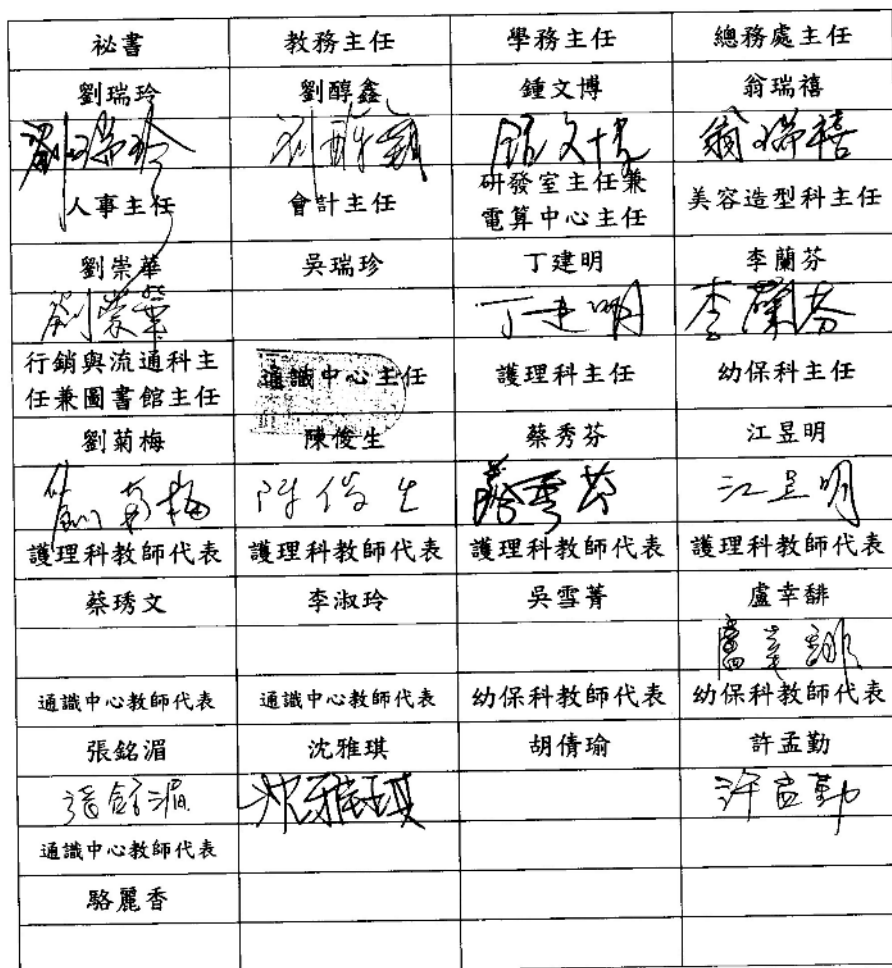 祕書 教務主任 學務主任 總務處主任
劉瑞玲 劉醇鑫 鍾文博 翁瑞禧
劉瑞玲 劉醇鑫 鍾文博 翁瑞禧
人事主任 會計主任 研發室主任兼 美容造型科主任
電算中心主任
劉崇華 吳瑞珍 丁建明 李蘭芬
劉崇華 丁建明 李蘭芬
行銷與流通科主 通識中心主任 護理科主任 幼保科主任
任兼圖書館主任
劉菊梅 陳俊生 蔡秀芬 江昱明
劉菊梅 陳俊生 蔡秀芬 江昱明
護理科教師代表 護理科教師代表 護理科教師代表 護理科教師代表
蔡琇文 李淑玲 吳雪菁 盧幸馡
盧幸馡
通識中心教師代表 通識中心教師代表 幼保科教師代表 幼保科教師代表
張銘湄 沈雅琪 胡倩瑜 許孟勤
張銘湄 沈雅琪 許孟勤
通識中心教師代表
駱麗香